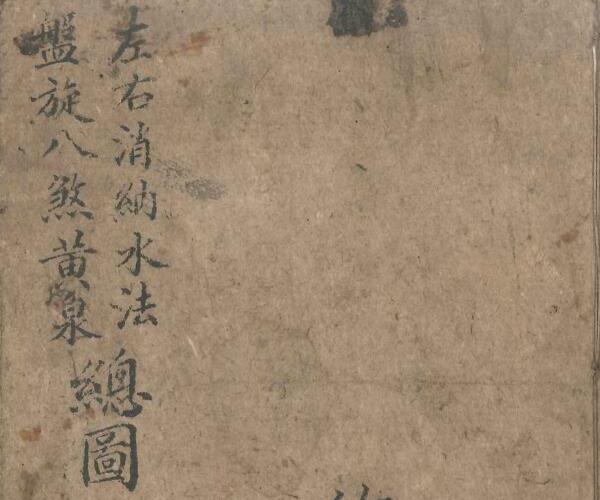 左右消納水法
盤旋八煞黃泉
總圖